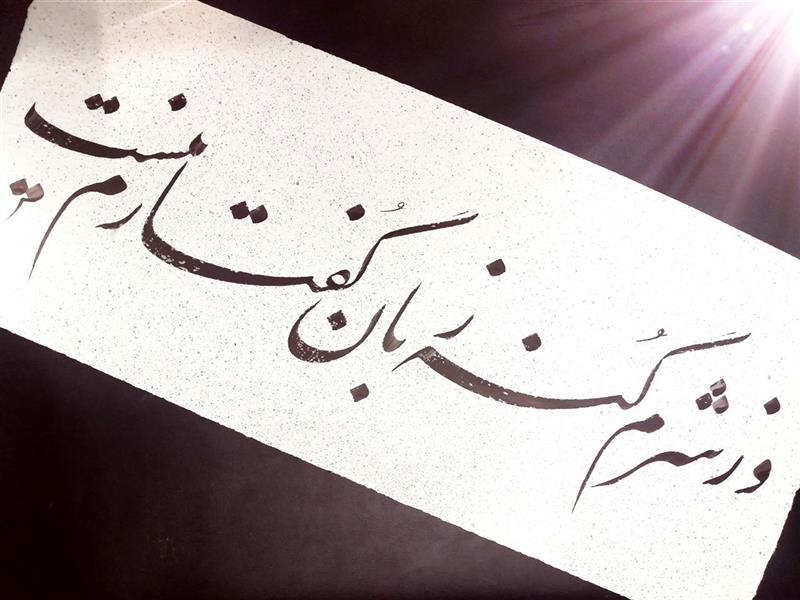 وز شرم گُنه زبان گُفتارم نیست